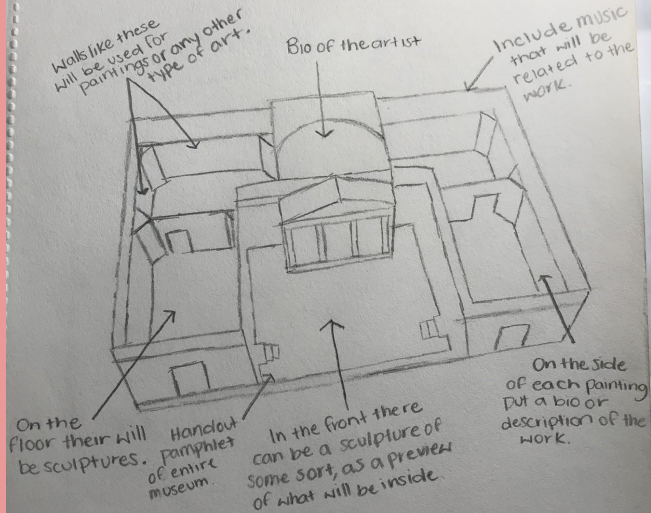 Walls like these
will be used for
paintings or any other
type of art.
Bio of the artist
Include music
that will be
related to the
work.
On the
floor their will
be sculptures.
Handout
pamphlet
of entire
museum.
In the front there
can be a sculpture of
some sort, as a preview
of what will be inside.
On the side
of each painting
put a bio or
description of the
work.